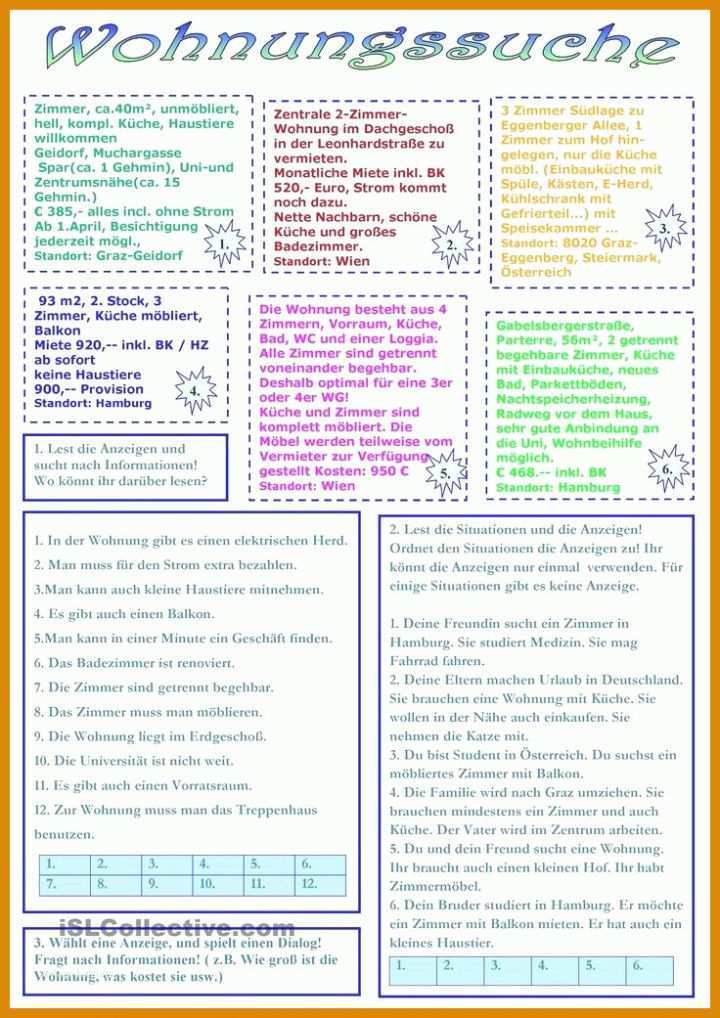 Wohnungssuche
Zimmer, ca.40m², unmöbliert,
hell, kompl. Küche, Haustiere
willkommen
Geidorf, Muchargasse
Spar(ca. 1 Gehmin), Uni-und
Zentrumsnähe(ca. 15
Gehmin.)
C 385,- alles incl. ohne Strom
Ab 1.April, Besichtigung
jederzeit mögl.,
Standort: Graz-Geidorf
1.
Zentrale 2-Zimmer-
Wohnung im Dachgeschoß
in der Leonhardstraße zu
vermieten.
Monatliche Miete inkl. BK
520,- Euro, Strom kommt
noch dazu.
Nette Nachbarn, schöne
Küche und großes
Badezimmer.
Standort: Wien
2.
3 Zimmer Südlage zu
Eggenberger Allee, 1
Zimmer zum Hof hin-
gelegen, nur die Küche
möbl. (Einbauküche mit
Spüle, Kästen, E-Herd,
Kühlschrank mit
Gefrierteil...) mit
Speisekammer ...
Standort: 8020 Graz-
Eggenberg, Steiermark,
Österreich
3.
93 m2, 2. Stock, 3
Zimmer, Küche möbliert,
Balkon
Miete 920,-- inkl. BK / HZ
ab sofort
keine Haustiere
900,-- Provision
Standort: Hamburg
4.
Die Wohnung besteht aus 4
Zimmern, Vorraum, Küche,
Bad, WC und einer Loggia.
Alle Zimmer sind getrennt
voneinander begehbar.
Deshalb optimal für eine 3er
oder 4er WG!
Küche und Zimmer sind
komplett möbliert. Die
Möbel werden teilweise vom
Vermieter zur Verfügung
gestellt Kosten: 950 C
Standort: Wien
5.
Gabelsbergerstraße,
Parterre, 56m², 2 getrennt
begehbare Zimmer, Küche
mit Einbauküche, neues
Bad, Parkettböden,
Nachtspeicherheizung,
Radweg vor dem Haus,
sehr gute Anbindung an
die Uni, Wohnbeihilfe
möglich.
C 468.-- inkl. BK
Standort: Hamburg
6.
1. Lest die Anzeigen und
sucht nach Informationen!
Wo könnt ihr darüber lesen?
1. In der Wohnung gibt es einen elektrischen Herd.
2. Man muss für den Strom extra bezahlen.
3.Man kann auch kleine Haustiere mitnehmen.
4. Es gibt auch einen Balkon.
5.Man kann in einer Minute ein Geschäft finden.
6. Das Badezimmer ist renoviert.
7. Die Zimmer sind getrennt begehbar.
8. Das Zimmer muss man möblieren.
9. Die Wohnung liegt im Erdgeschoß.
10. Die Universität ist nicht weit.
11. Es gibt auch einen Vorratsraum.
12. Zur Wohnung muss man das Treppenhaus
benutzen.
1. 2. 3. 4. 5. 6.
7. 8. 9. 10. 11. 12.
iSLCollective.com
3. Wählt eine Anzeige, und spielt einen Dialog!
Fragt nach Informationen! ( z.B. Wie groß ist die
Wohnung, was kostet sie usw.)
2. Lest die Situationen und die Anzeigen!
Ordnet den Situationen die Anzeigen zu! Ihr
könnt die Anzeigen nur einmal verwenden. Für
einige Situationen gibt es keine Anzeige.
1. Deine Freundin sucht ein Zimmer in
Hamburg. Sie studiert Medizin. Sie mag
Fahrrad fahren.
2. Deine Eltern machen Urlaub in Deutschland.
Sie brauchen eine Wohnung mit Küche. Sie
wollen in der Nähe auch einkaufen. Sie
nehmen die Katze mit.
3. Du bist Student in Österreich. Du suchst ein
möbliertes Zimmer mit Balkon.
4. Die Familie wird nach Graz umziehen. Sie
brauchen mindestens ein Zimmer und auch
Küche. Der Vater wird im Zentrum arbeiten.
5. Du und dein Freund sucht eine Wohnung.
Ihr braucht auch einen kleinen Hof. Ihr habt
Zimmermöbel.
6. Dein Bruder studiert in Hamburg. Er möchte
ein Zimmer mit Balkon mieten. Er hat auch ein
kleines Haustier.
1. 2. 3. 4. 5. 6.